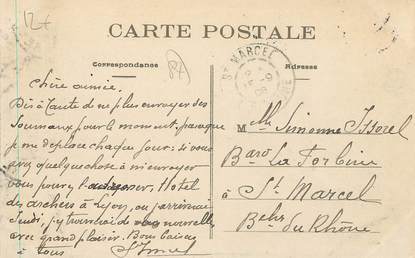 12+
CARTE POSTALE
Correspondance
87
ST MARCEL
Adresse
Chère aimée.
Dis à Tante de ne plus envoyer des
Journaux pour le moment, parceque
je me déplace chaque jour; si vous
avez quelque chose à m'envoyer
vous pouvez l'adresser, Hotel
des archers à Lyon, ou j'arriverai
Jeudi, j'y trouverai de vos nouvelles
avec grand plaisir. Bons baisers
à tous
M Mlle Simonne
Bard La
à St Marcel
B du Rhône